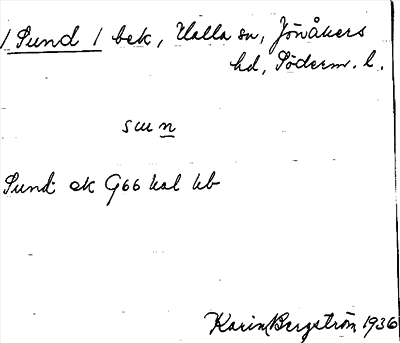 / Sund / bek, Halla sn, Jönåkers
hd, Söderm. l.
sun
Sund ek G66 hal kb
Karin Bergström 1936